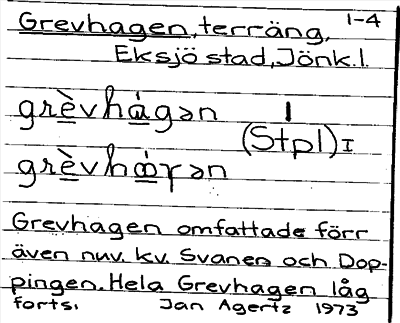 Grevhagen, terräng, 1-4
Eksjö stad, Jönk.l.
grèvhàgən I
(Stpl) I
grèvhòγən
Grevhagen omfattade förr
även nuv. kv. Svanen och Dop-
pingen. Hela Grevhagen låg
forts. Jan Agertz 1973